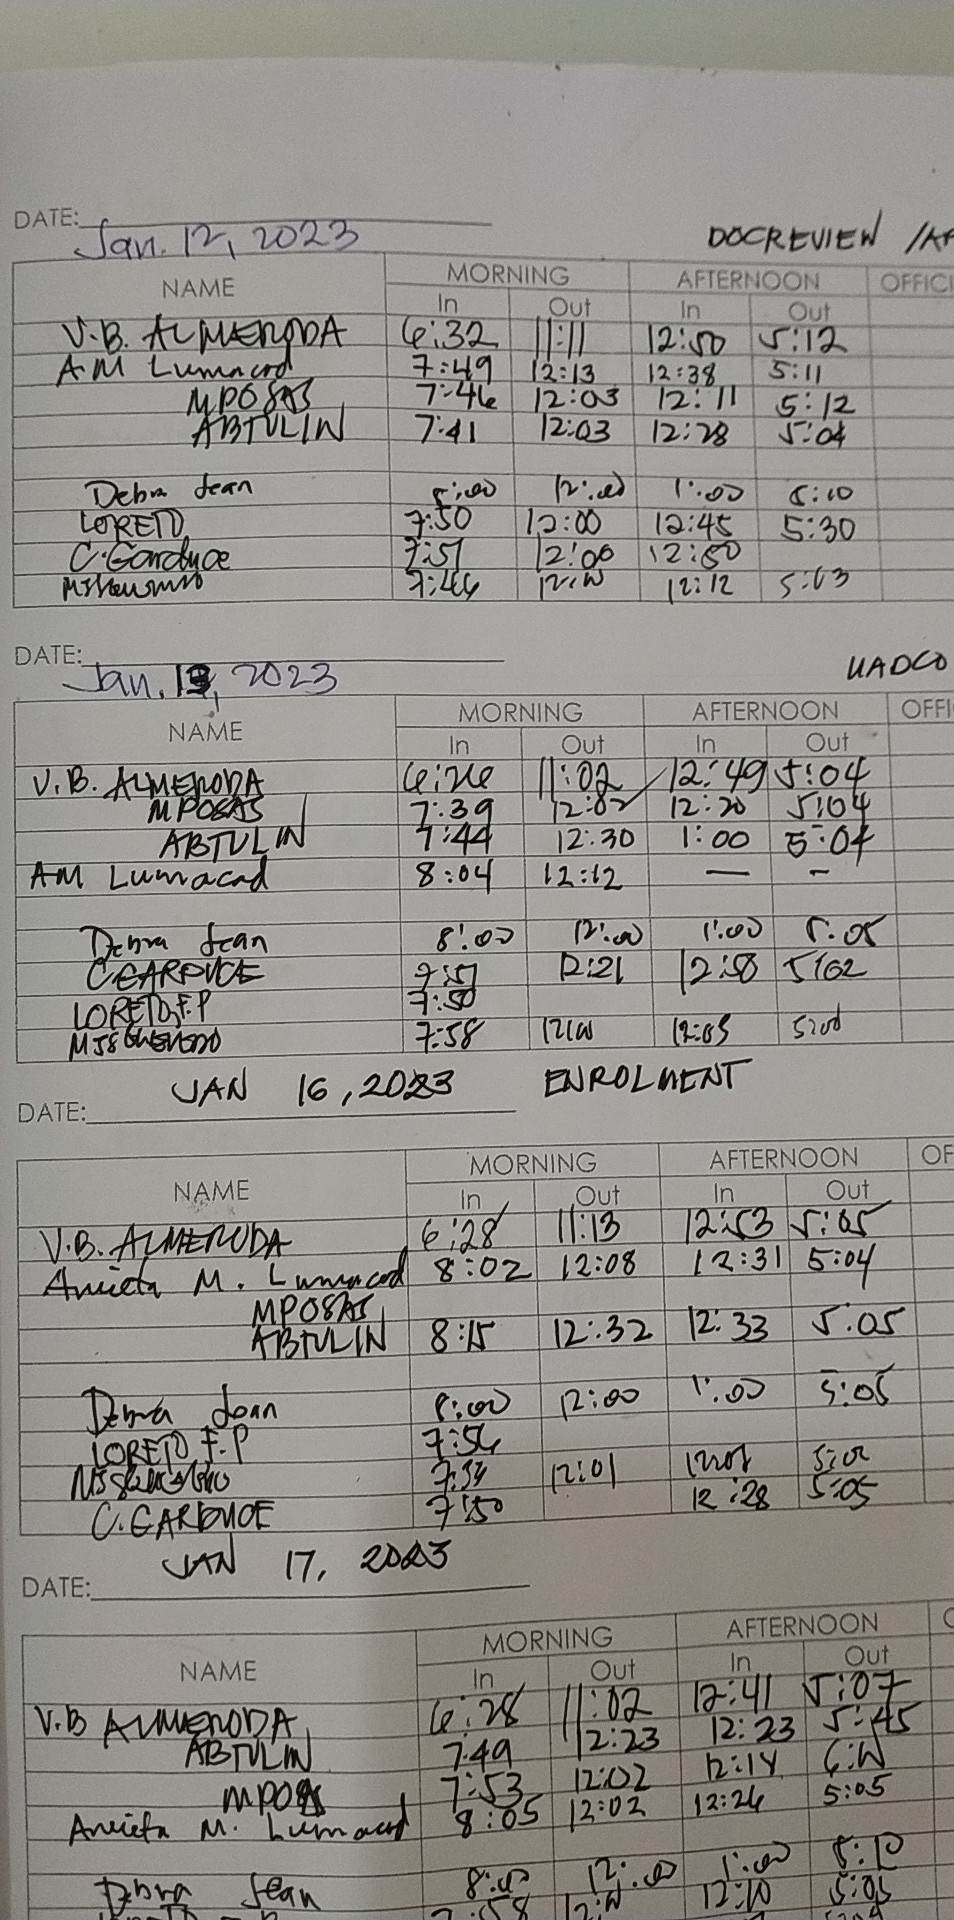 DATE: Jan. 12, 2023 DOCREVIEW /AP
NAME MORNING AFTERNOON OFFICI
In Out In Out
V.B. ALMERODA 6:32 11:11 12:50 5:12
A.M Lumacad 7:49 12:13 12:38 5:11
MPOSAS 7:46 12:03 12:11 5:12
ABTULIN 7:41 12:03 12:28 5:04
Debra Jean 8:00 12:00 1:00 5:10
LORETO 7:50 12:00 12:45 5:30
C. Garduce 7:51 12:00 12:50
7:46 12:12 5:03
DATE: Jan. 13, 2023 UADCO
NAME MORNING AFTERNOON OFFI
In Out In Out
V.B. ALMERODA 6:26 11:02 12:49 5:04
MPOSAS 7:39 12:02 12:20 5:04
ABTULIN 7:44 12:30 1:00 5:04
AM Lumacad 8:04 12:12 — -
Debra Jean 8:00 12:00 1:00 5:05
C GARDUCE 7:57 12:21 12:58 5:02
LORETO, F.P 7:50
7:58 12:05
DATE: JAN 16, 2023 ENROLMENT
NAME MORNING AFTERNOON OF
In Out In Out
V.B. ALMERODA 6:28 11:13 12:53 5:05
Anieta M. Lumacad 8:02 12:08 12:31 5:04
MPOSAS
ABTULIN 8:15 12:32 12:33 5:05
Debra Jean 8:00 12:00 1:00 5:05
LORETO F.P 7:56
12:01
C. GARDUCE 7:50 12:28 5:05
DATE: JAN 17, 2023
NAME MORNING AFTERNOON
In Out In Out
V.B ALMERODA 6:28 11:02 12:41 5:07
ABTULIN 7:49 12:23 12:23 5:45
MPOSAS 7:53 12:02 12:14
Anieta M. Lumacad 8:05 12:02 12:26 5:05
Debra Jean 8:00 12:00 1:00 5:10
7:58 12:10 5:05